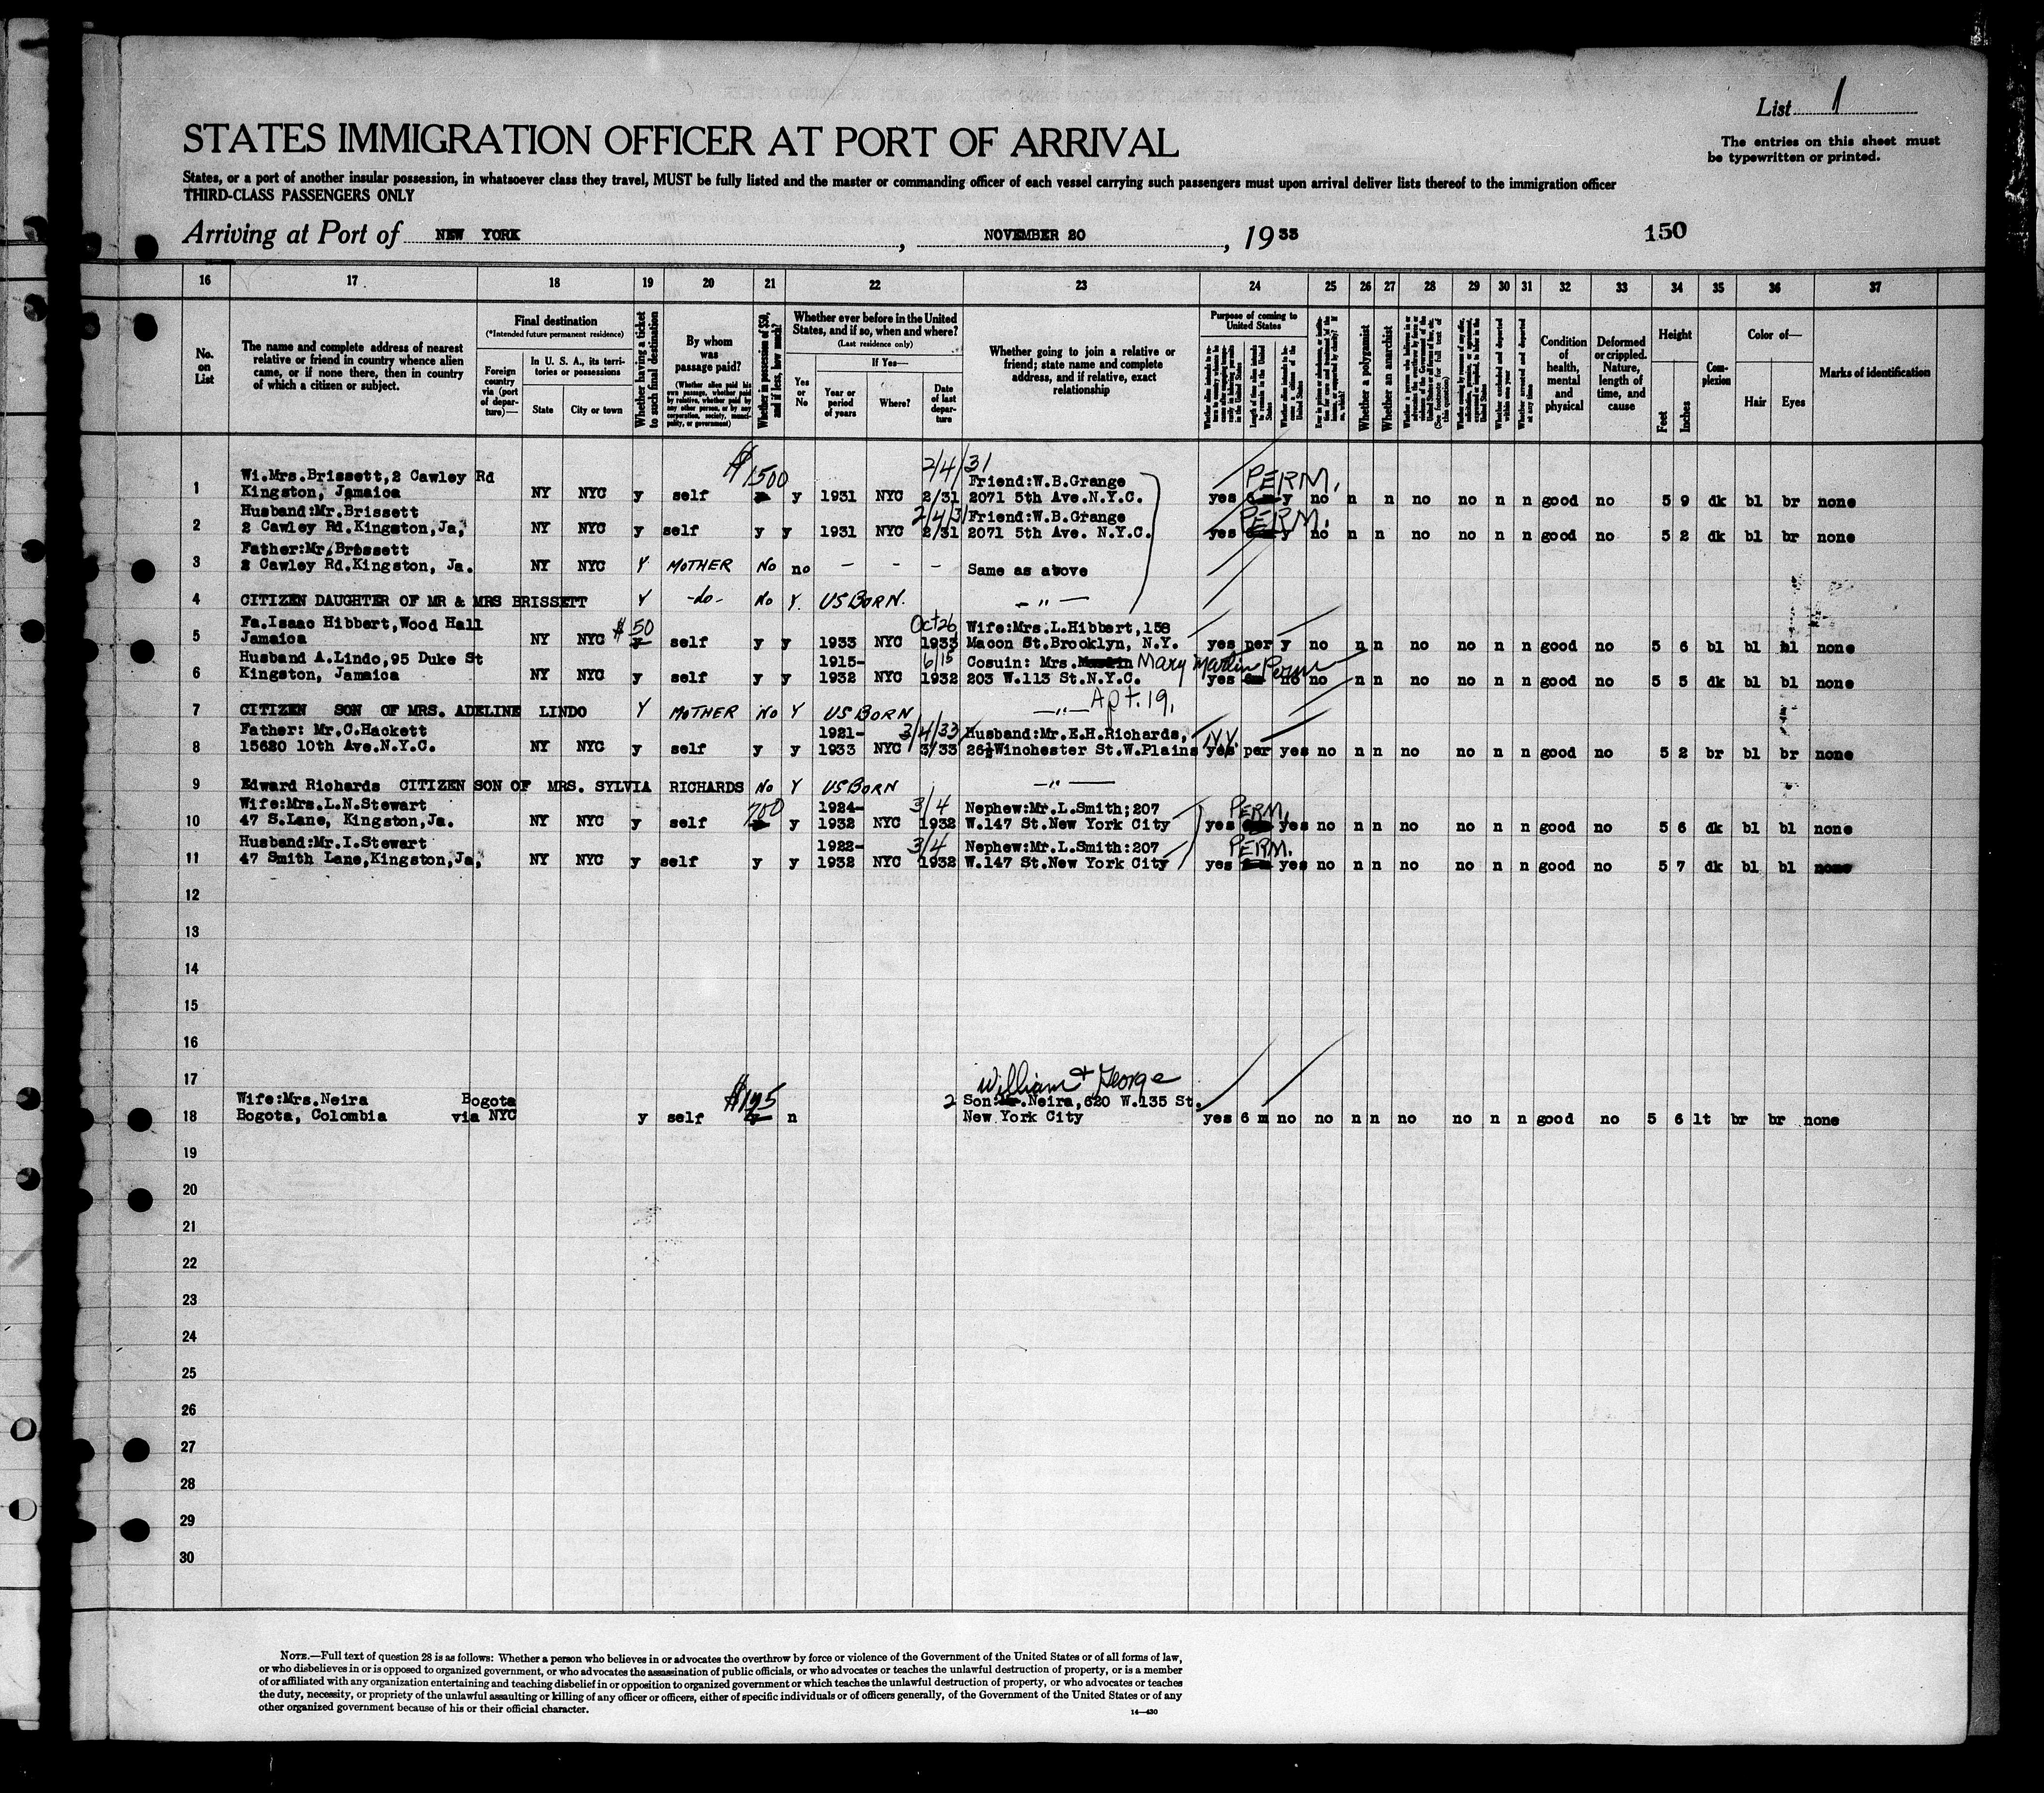 List 1
STATES IMMIGRATION OFFICER AT PORT OF ARRIVAL
The entries on this sheet must
be typewritten or printed.
States, or a port of another insular possession, in whatsoever class they travel, MUST be fully listed and the master or commanding officer of each vessel carrying such passengers must upon arrival deliver lists thereof to the immigration officer
THIRD-CLASS PASSENGERS ONLY
Arriving at Port of NEW YORK , NOVEMBER 20 , 19 33 150
16 17 18 19 20 21 22 23 24 25 26 27 28 29 30 31 32 33 34 35 36 37
No. on List
The name and complete address of nearest relative or friend in country whence alien came, or if none there, then in country of which a citizen or subject.
Final destination
(*Intended future permanent residence)
Foreign country via (port of departure)—
In U. S. A., its territories or possessions
State City or town
Whether having a ticket to such final destination
By whom was passage paid?
(Whether alien paid his own passage, whether paid by relative, whether paid by any other person, or by any corporation, society, municipality, or government)
Whether in possession of $50, and if less, how much?
Whether ever before in the United States, and if so, when and where?
(Last residence only)
Yes or No
If Yes—
Year or period of years Where? Date of last departure
Whether going to join a relative or friend; state name and complete address, and if relative, exact relationship
Purpose of coming to United States
Length of time alien intends to remain in the United States
Whether alien intends to become a citizen of the United States
Whether a polygamist
Whether an anarchist
Whether arrested and deported at any time
Condition of health, mental and physical
Deformed or crippled. Nature, length of time, and cause
Height
Feet Inches
Complexion
Color of—
Hair Eyes
Marks of identification
$1500 2/4/31
Wi.Mrs.Brissett,2 Cawley Rd Friend:W.B.Grange PERM.
1 Kingston, Jamaica NY NYC y self y 1931 NYC 2/31 2071 5th Ave.N.Y.C. yes y no n n no no n n good no 5 9 dk bl br none
Husband:Mr.Brissett 2/4/31 Friend:W.B.Grange PERM.
2 2 Cawley Rd.Kingston,Ja, NY NYC y self y y 1931 NYC 2/31 2071 5th Ave. N.Y.C. yes y no n n no no n n good no 5 2 dk bl br none
Father:Mr.Brissett
3 2 Cawley Rd.Kingston, Ja. NY NYC Y MOTHER No no - - - Same as above
4 CITIZEN DAUGHTER OF MR & MRS BRISSETT Y -do- No Y. US BORN. — " —
Fa.Isaac Hibbert,Wood Hall $50 Oct 26 Wife:Mrs.L.Hibbert,158
5 Jamaica NY NYC y self y y 1933 NYC 1933 Macon St.Brooklyn, N.Y. yes per y no n n no no n n good no 5 6 bl bl bl none
Husband A.Lindo,95 Duke St 1915- 6/15 Cosuin: Mrs. Mary Martin Perm
6 Kingston, Jamaica NY NYC y self y y 1932 NYC 1932 203 W.113 St.N.Y.C. yes 6m no no n n no no n n good no 5 5 dk bl bl none
7 CITIZEN SON OF MRS. ADELINE LINDO Y MOTHER No Y US BORN — " — Apt. 19,
Father: Mr.C.Hackett 1921- 3/4/33 Husband:Mr.E.H.Richards, N.Y.
8 15620 10th Ave.N.Y.C. NY NYC y self y y 1933 NYC 3/33 26½Winchester St.W.Plains yes per yes no n n no no n n good no 5 2 br bl br none
9 Edward Richards CITIZEN SON OF MRS. SYLVIA RICHARDS No Y US BORN — " —
Wife:Mrs.L.N.Stewart 700 1924- 3/4 Nephew:Mr.L.Smith;207 PERM.
10 47 S.Lane, Kingston,Ja. NY NYC y self y 1932 NYC 1932 W.147 St.New York City yes yes no n n no no n n good no 5 6 dk bl bl none
Husband:Mr.I.Stewart 1922- 3/4 Nephew:Mr.L.Smith:207 PERM.
11 47 Smith Lane,Kingston,Ja, NY NYC y self y y 1932 NYC 1932 W.147 St.New York City yes yes no n n no no n n good no 5 7 dk bl bl none
12
13
14
15
16
17 William & George
Wife:Mrs.Neira Bogota $195 2 Son: Neira,620 W.135 St.
18 Bogota, Colombia via NYC y self y n New York City yes 6 m no no n n no no n n good no 5 6 lt br br none
19
20
21
22
23
24
25
26
27
28
29
30
NOTE.—Full text of question 28 is as follows: Whether a person who believes in or advocates the overthrow by force or violence of the Government of the United States or of all forms of law,
or who disbelieves in or is opposed to organized government, or who advocates the assassination of public officials, or who advocates or teaches the unlawful destruction of property, or is a member
of or affiliated with any organization entertaining and teaching disbelief in or opposition to organized government or which teaches the unlawful destruction of property, or who advocates or teaches
the duty, necessity, or propriety of the unlawful assaulting or killing of any officer or officers, either of specific individuals or of officers generally, of the Government of the United States or of any
other organized government because of his or their official character.
14—430